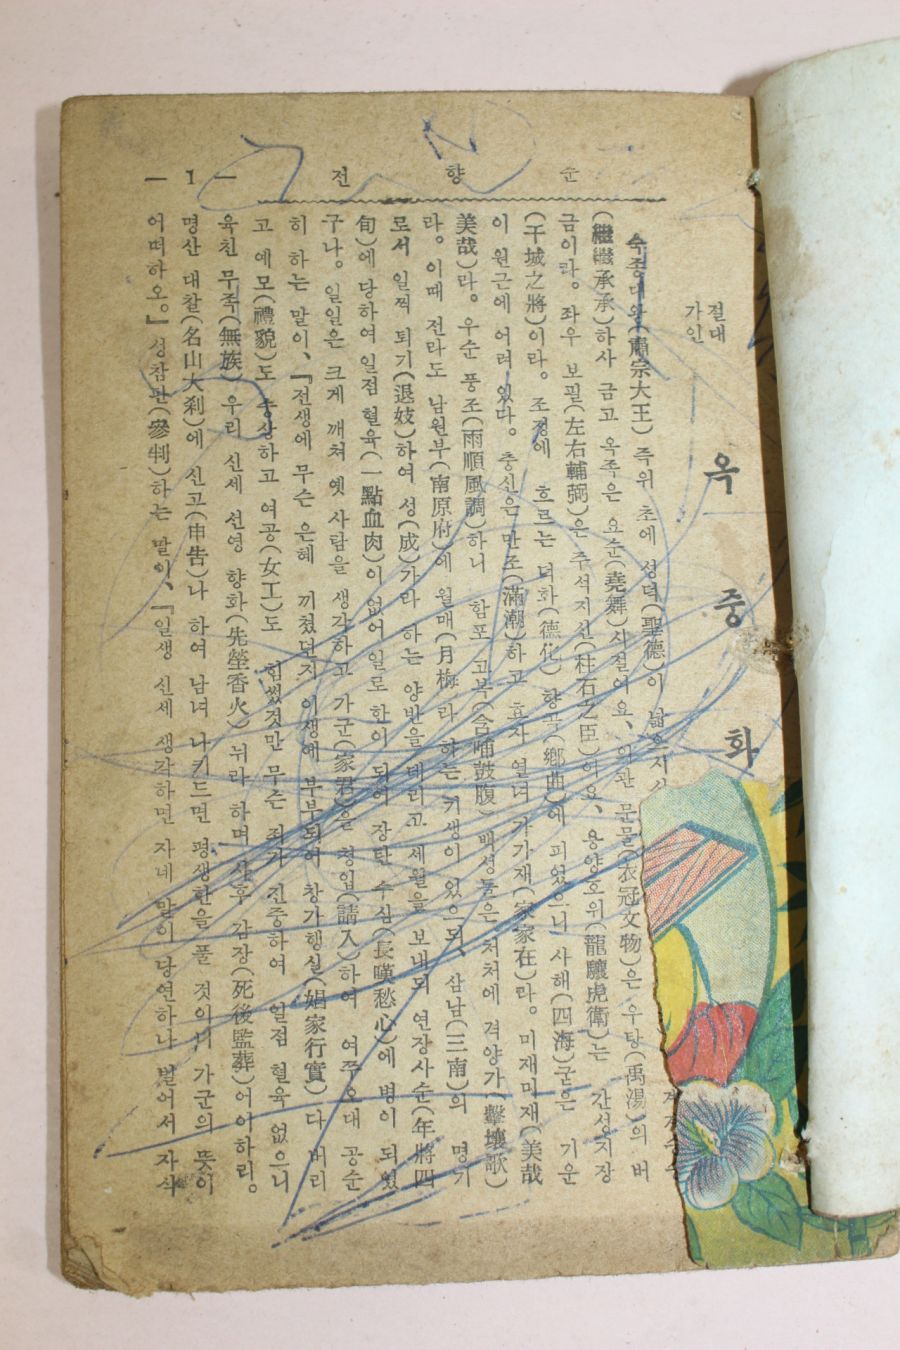 절대
가인
옥 중 화
숙종대왕(肅宗大王) 즉위 초에 성덕(聖德)이 넓으시사
(繼繼承承)하사 금고 옥족은 요순(堯舜)시절이요, 의관 문물(衣冠文物)은 우탕(禹湯)의 버
금이라。좌우 보필(左右輔弼)은 주석지신(柱石之臣)이요、용양호위(龍驤虎衛)는 간성지장
(干城之將)이라。조정에 흐르는 덕화(德化) 향곡(鄕曲)에 퍼었으니 사해(四海)굳은 기운
이 원근에 어려 있다。충신은 만조(滿潮)하고 효자 열녀 가가재(家家在)라。미재미재(美哉
美哉)라。우순 풍조(雨順風調)하니 함포 고복(含哺鼓腹) 백성들은 처처에 격양가(擊壤歌)
라。이때 전라도 남원부(南原府)에 월매(月梅)라 하는 기생이 있으되、삼남(三南)의 명기
로서 일찍 퇴기(退妓)하여 성(成)가라 하는 양반을 데리고 세월을 보내되 연장사순(年將四
旬)에 당하여 일점 혈육(一點血肉)이 없어 일로 한이 되어 장탄 수심(長嘆愁心)에 병이 되었
구나。일일은 크게 깨쳐 옛 사람을 생각하고 가군(家君)을 청입(請入)하여 여주오대 공순
히 하는 말이、『전생에 무슨 은혜 끼쳤던지 이생에 부부되어 창가행실(娼家行實)다 버리
고 예모(禮貌)도 숭상하고 여공(女工)도 힘썼것만 무슨 죄가 진중하여 일점 혈육 없으니
육친 무족(無族) 우리 신세 선영 향화(先塋香火) 뉘라 하며 사후 감장(死後監葬)어이하리。
명산 대찰(名山大刹)에 신고(申告)나 하여 남녀 나키드면 평생한을 풀 것이니 가군의 뜻이
어떠하오。』성참판(參判)하는 말이、『일생 신세 생각하면 자네 말이 당연하나 빌어서 자식
순 향 전
— 1 —